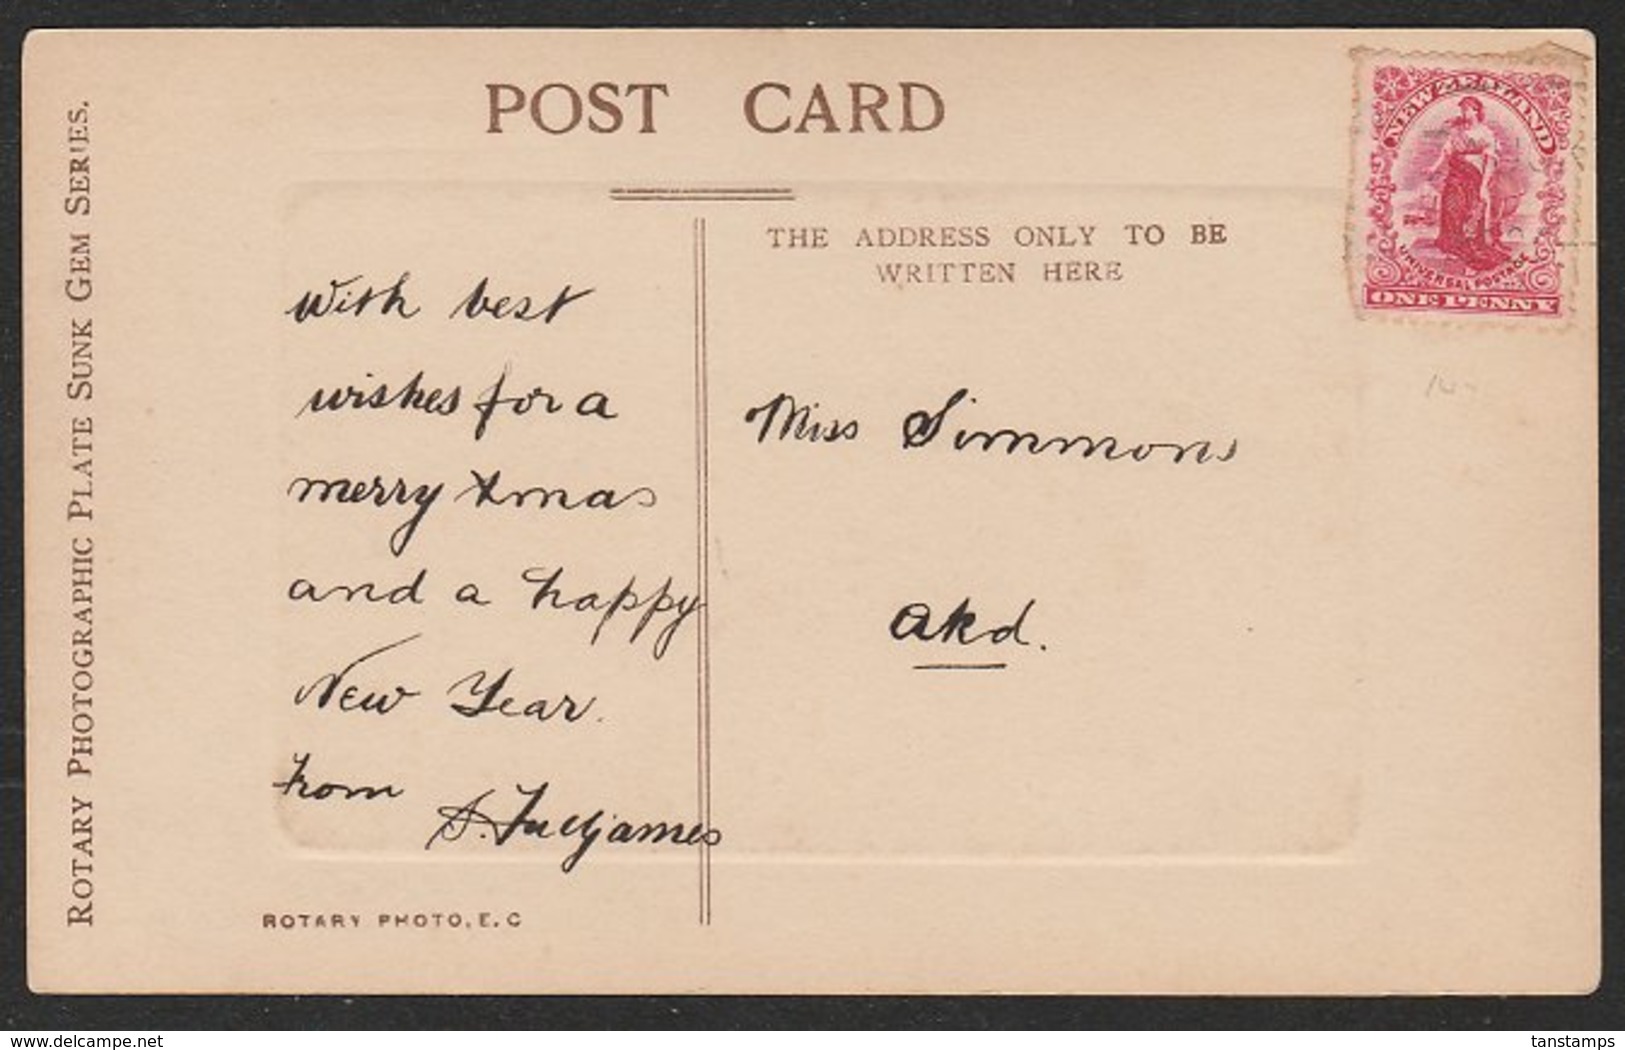 POST CARD
ROTARY PHOTOGRAPHIC PLATE SUNK GEM SERIES.
THE ADDRESS ONLY TO BE
WRITTEN HERE
NEW ZEALAND
UNIVERSAL POSTAGE
ONE PENNY
With best
wishes for a
merry Xmas
and a happy
New Year.
From
S.
Miss Simmons
Akd.
ROTARY PHOTO, E.C
www.delcampe.net
tanstamps